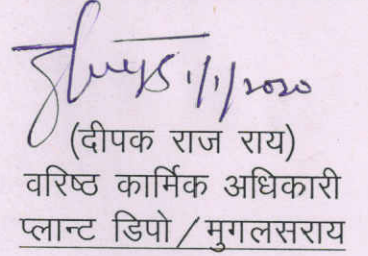 1/1/2020
(दीपक राज राय)
वरिष्ठ कार्मिक अधिकारी
प्लान्ट डिपो/मुगलसराय